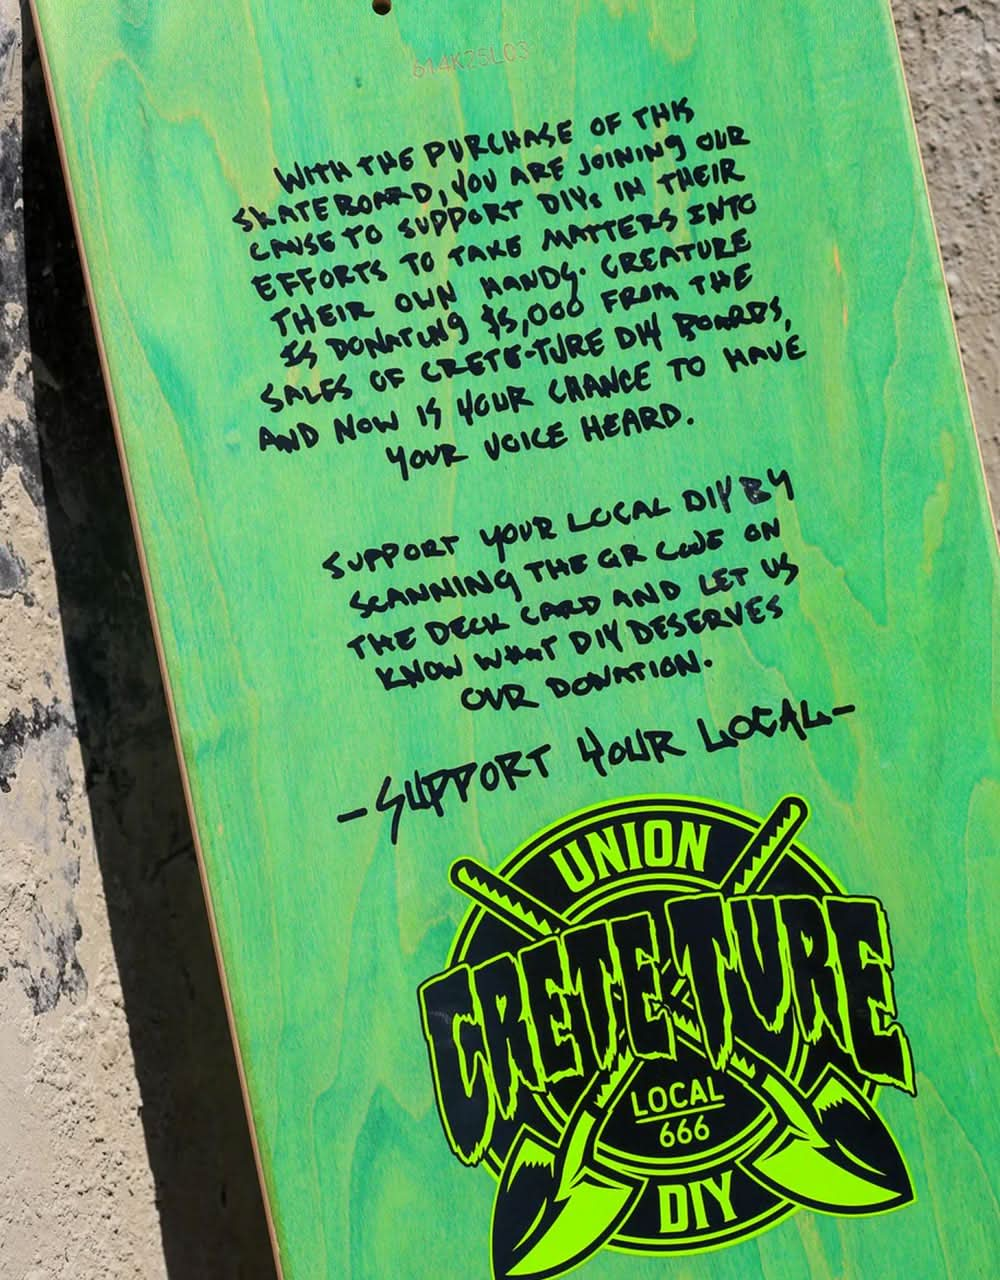 614K25LC3
WITH THE PURCHASE OF THIS
SKATEBOARD, YOU ARE JOINING OUR
CAUSE TO SUPPORT DIYs IN THEIR
EFFORTS TO TAKE MATTERS INTO
THEIR OWN HANDS. CREATURE
IS DONATING $5,000 FROM THE
SALES OF CRETE-TURE DIY BOARDS,
AND NOW IS YOUR CHANCE TO HAVE
YOUR VOICE HEARD.
SUPPORT YOUR LOCAL DIY BY
SCANNING THE QR CODE ON
THE DECK CARD AND LET US
KNOW WHAT DIY DESERVES
OUR DONATION.
-SUPPORT YOUR LOCAL-
UNION
CRETE-TURE
LOCAL
666
DIY